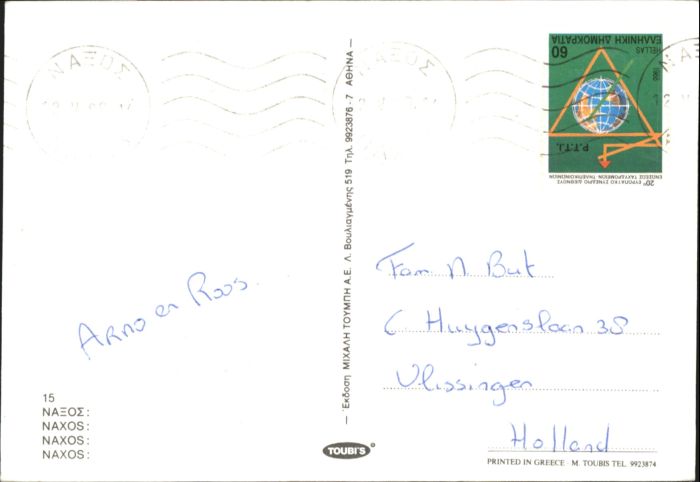 ΝΑΞΟΣ
ΝΑΞΟΣ
ΕΛΛΗΝΙΚΗ ΔΗΜΟΚΡΑΤΙΑ
60
HELLAS
1988
P.T.T.I.
20º ΕΥΡΩΠΑΪΚΟ ΣΥΝΕΔΡΙΟ ΔΙΕΘΝΟΥΣ
ΕΝΩΣΕΩΣ ΤΑΧΥΔΡΟΜΕΙΩΝ ΤΗΛΕΠΙΚΟΙΝΩΝΙΩΝ
Arno en Roos
Fam N But
C Huygenslaan 38
Vlissingen
Holland
Έκδοση ΜΙΧΑΛΗ ΤΟΥΜΠΗ Α.Ε. Λ. Βουλιαγμένης 519 Τηλ. 9923876 - 7 ΑΘΗΝΑ
15
ΝΑΞΟΣ:
NAXOS:
NAXOS:
NAXOS:
TOUBI'S
PRINTED IN GREECE M. TOUBIS TEL. 9923874